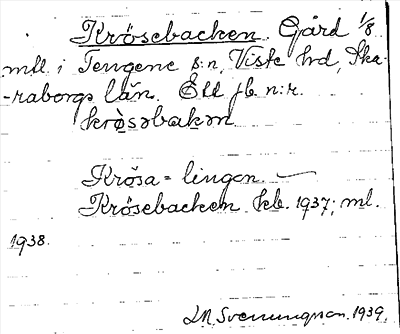 Krösebacken. Gård 1/8
mtl i Tengene s:n, Viste hd, Ska-
-raborgs län. Ett jb. n:r.
krò̤səbakən
Krösa = lingon. —
Krösebacken kb. 1937; ml.
1938.
Svenungsson. 1939.